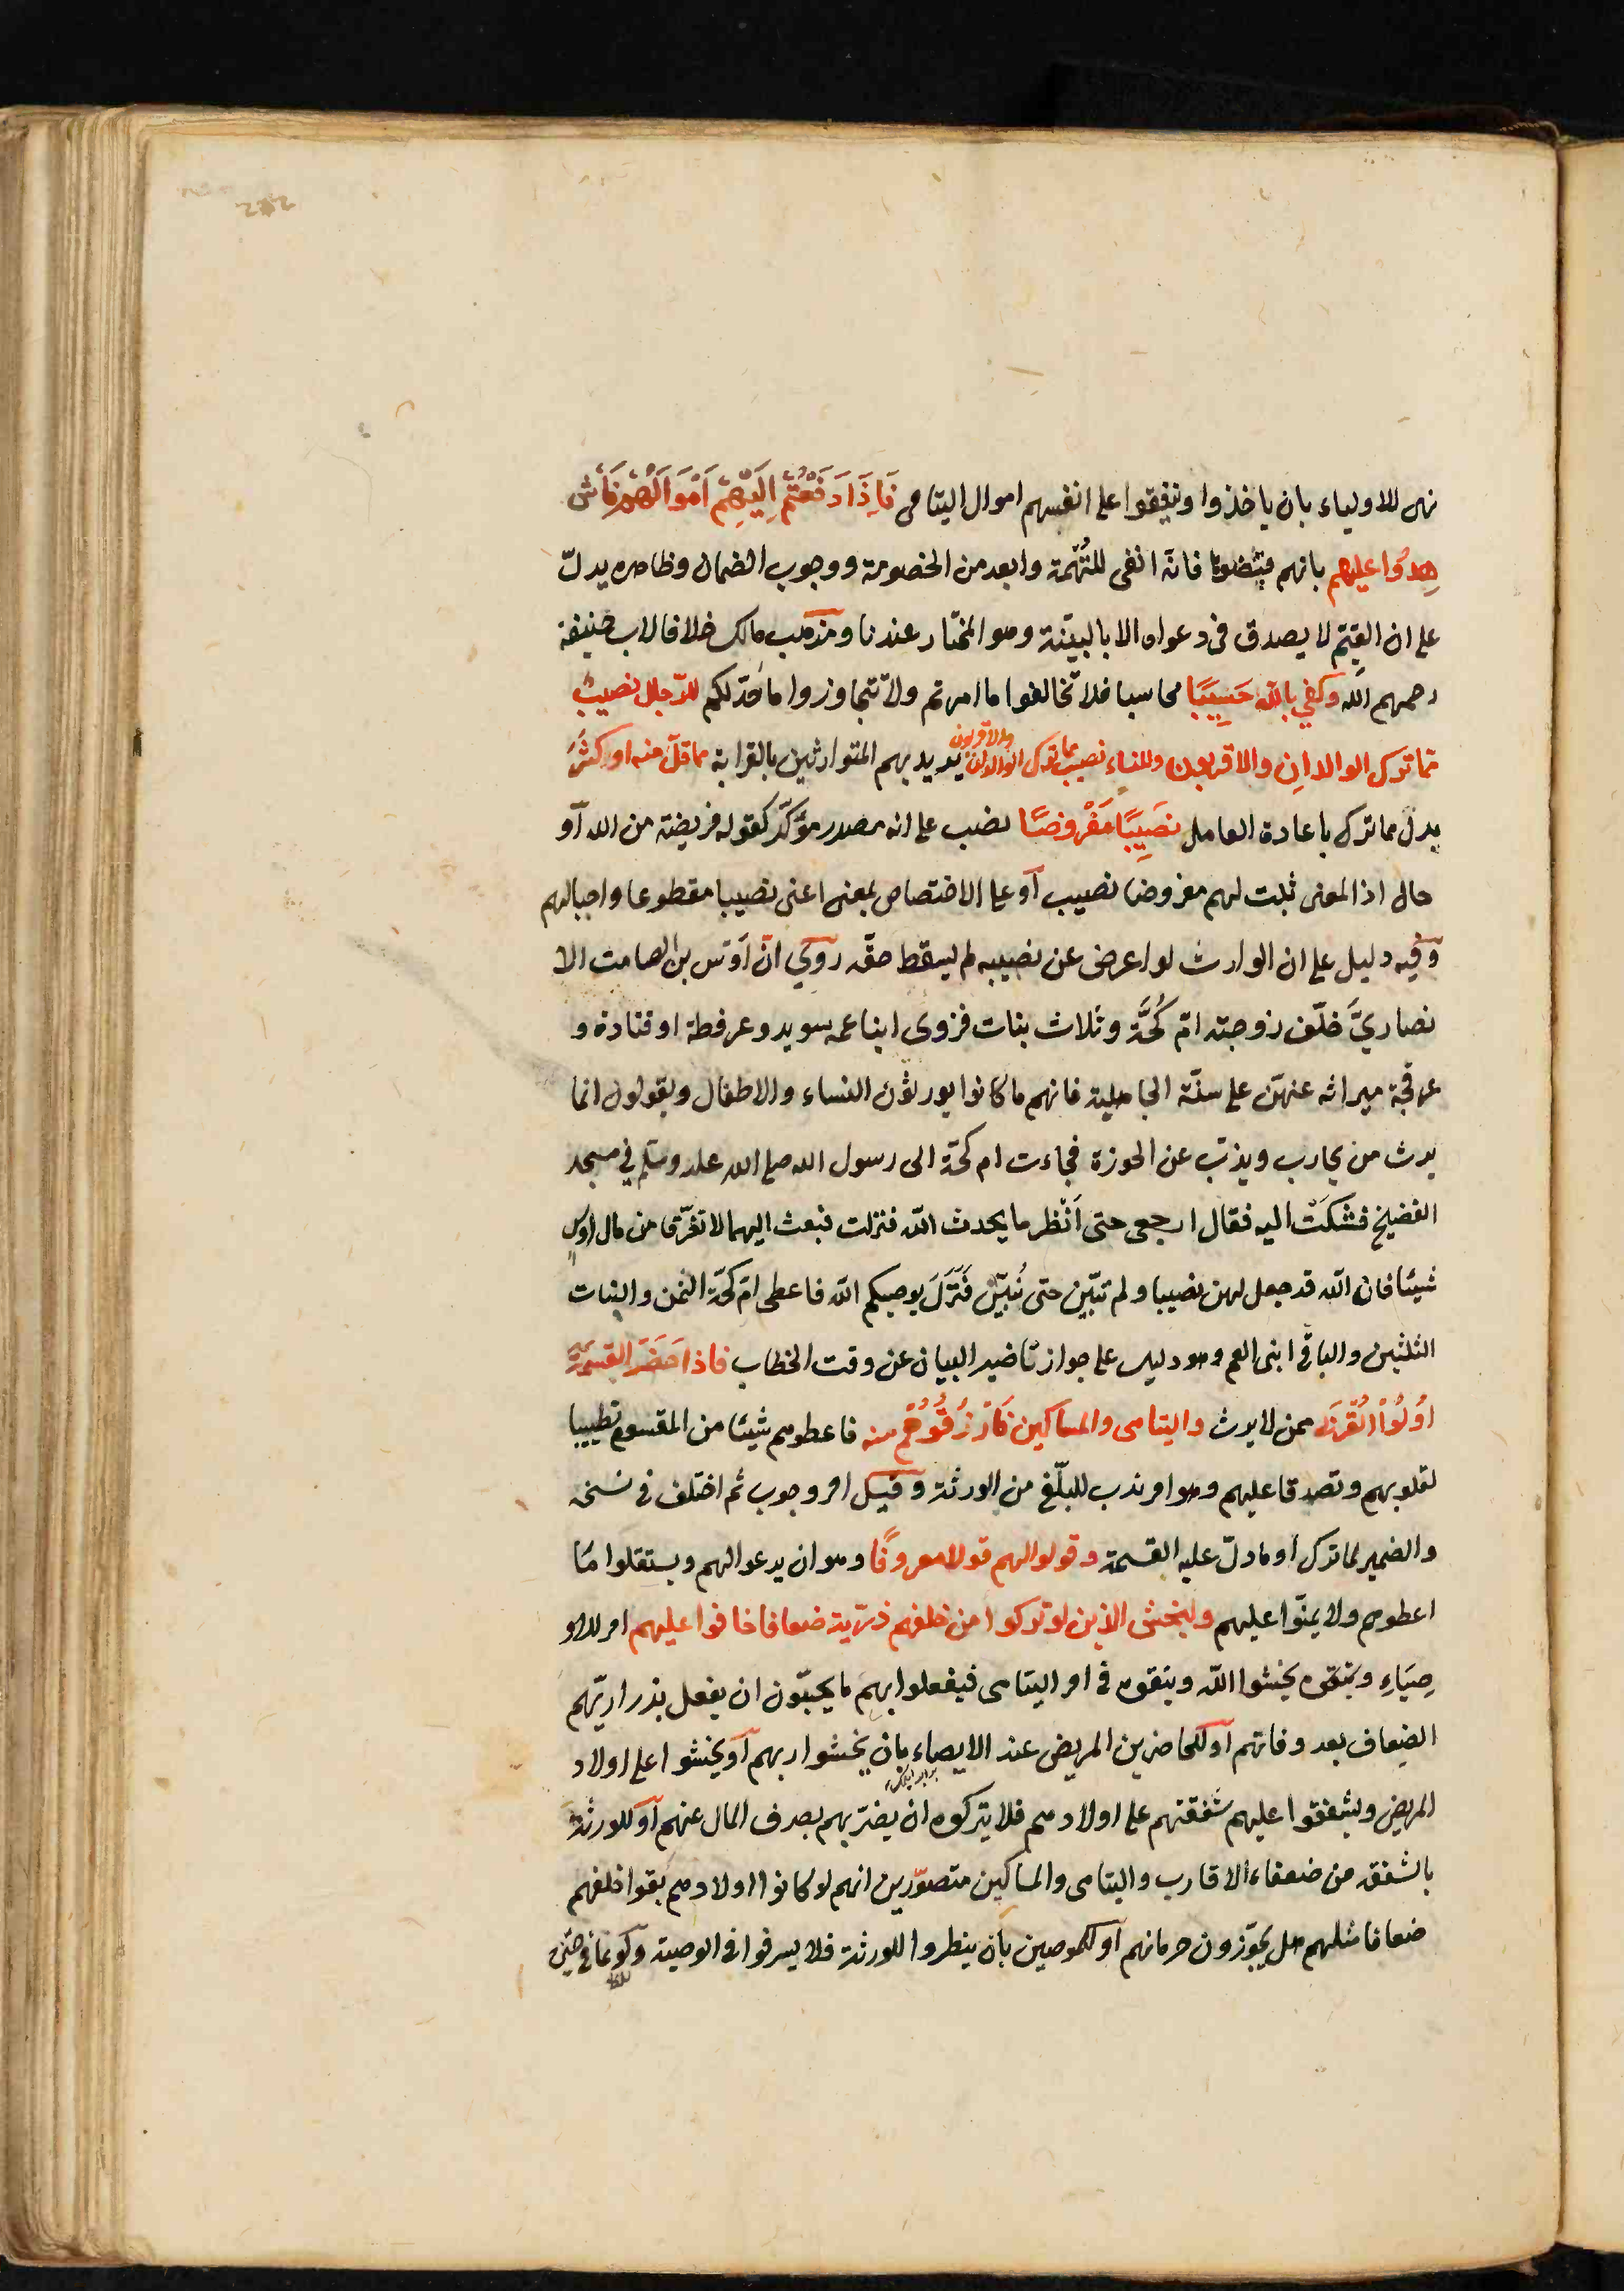 نهى للاولياء بان ياخذوا وينفقوا على انفسهم اموال اليتامى فَاِذَا دَفَعْتُمْ اِلَيْهِمْ اَمْوَالَهُمْ فَاَش
هِدُوا عليهم بانهم قبضوها فانه انفى للتُّهَمة وابعد من الخصومة ووجوب الضمان وظاهره يدلّ
على ان القيّم لا يصدق فى دعواه الا بالبيّنة وهو المختار عندنا ومذهب مالك خلافا لابى حنيفة
رحمهم الله وكفي بالله حَسِيبًا محاسبا فلا تخالفوا ما امرتم ولا تتجاوزوا ما حُدّ لكم للرّجال نصيبٌ
مّما ترك الوالدانِ والاقربون وللنساء نصيب مما ترك الوالدان والاقربون يريد بهم المتوارثين بالقرابة مما قلّ منه او كثُرَ
بدل مما ترك باعادة العامل نصَيِبًا مَفْروضًا نصب على انه مصدر مؤكّد كقوله فريضة من الله أو
حال اذ المعنى ثبت لهم مفروضا نصيب أو على الاختصاص بمعنى اعنى نصيبا مقطوعا واجبا لهم
وفيه دليل على ان الوارث لو اعرض عن نصيبه لم يسقط حقّه روي انّ اَوْس بن الصامت الا
نصاريَّ خلّف زوجته امّ كُحَّة وثلاث بنات فزوى ابنا عمه سويد وعرفطة او قتادة و
عرفجة ميراثه عنهنّ على سنّة الجاهلية فانهم ما كانوا يورثون النساء والاطفال ويقولون انما
يرث من يحارب ويذبّ عن الحوزة فجاءت ام كحّة الى رسول الله صلى الله عليه وسلم في مسجد
الفضيخ فشكَتْ اليه فقال ارجعى حتى اَنْظر ما يحدث الله فنزلت فبعث اليهما لا تفرّقا من مال اوس
شيئا فان الله قد جعل لهن نصيبا ولم تبيّن حتى نُبيّن فَنَزَلَ يوصيكم الله فاعطى امّ كحّة الثمن والبنات
الثلثين والباقى ابنى العم وهو دليل على جواز تاخير البيان عن وقت الخطاب فاذا حَضَرَ القسمَةَ
اوُلُوا القُرْبَى ممن لا يرث واليتامى والمساكين فَارْزُقُوهُمْ منه فاعطوهم شيئا من المقسوم تطييبا
لقلوبهم وتصدقا عليهم وهو امر ندب للبلّغ من الورثة وقيل امر وجوب ثم اختلف فى نسخه
والضمير لما ترك أو ما دلّ عليه القسمة وقولوا لهم قولا معروفًا وهو ان يدعوا لهم ويستقلّوا مّا
اعطوهم ولا يمنّوا عليهم وليخشى الذين لو تركوا من خلفهم ذرّية ضعافا خافوا عليهم امر للاو
صِيَاءِ ويتقوه يخشوا الله ويتقوه فى امر اليتامى فيفعلوا بهم ما يحبّون ان يفعل بذراريّهم
الضعاف بعد وفاتهم أو للحاضرين المريض عند الايصاء بان يخشوا ربهم أو يخشوا على اولاد
المريض ويشفقوا عليهم شفقتهم على اولادهم فلا يتركوه ان يضرّ بهم بصرف المال عنهم أو للورثة
بالشفقة من ضعفاء الاقارب واليتامى والمساكين متصوّرين انهم لو كانوا اولادهم بقوا خلفهم
ضعافا مثلهم هل يجوّزون حرمانهم أو للموصين بان ينظروا للورثة فلا يسرفوا فى الوصية ولو بما فى حيّزه